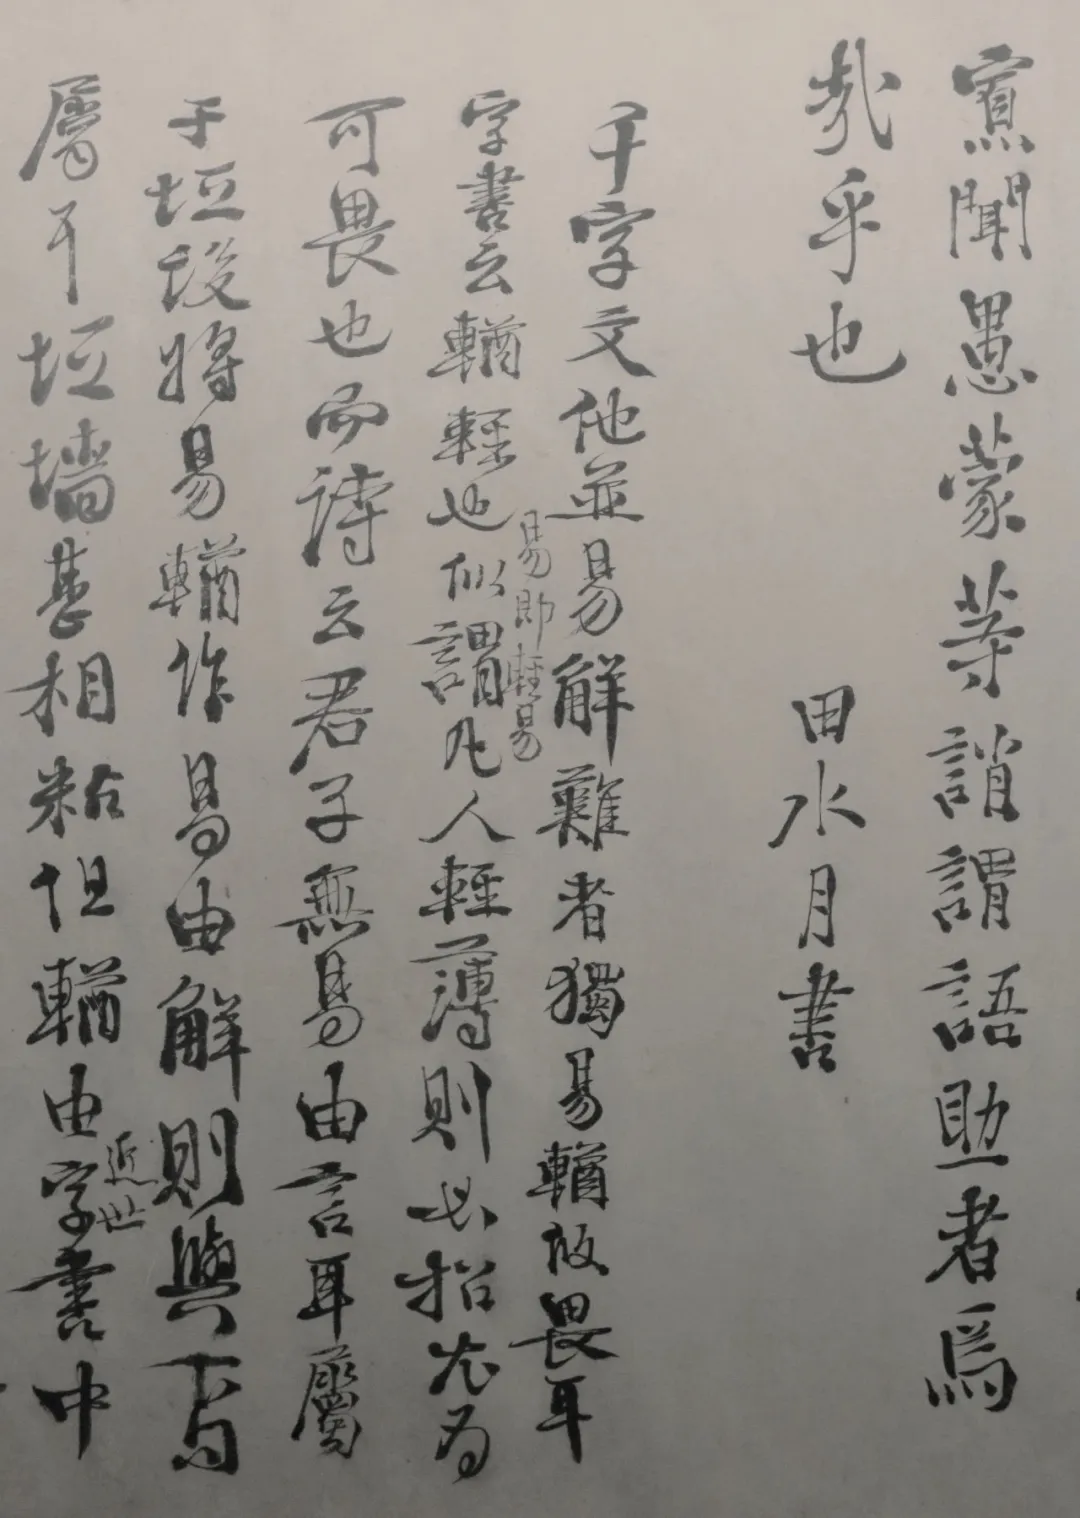 寡聞愚蒙等誚謂語助者焉
哉乎也
田水月書
千字文他並易解難者獨易輶攸畏耳
字書云輶輕也似謂凡人輕薄則必招尤為
易即輕易
可畏也而詩云君子無易由言耳屬
于垣故將易輶作易由解則與下句
屬耳垣墻甚相粘但輶由字書中
近世